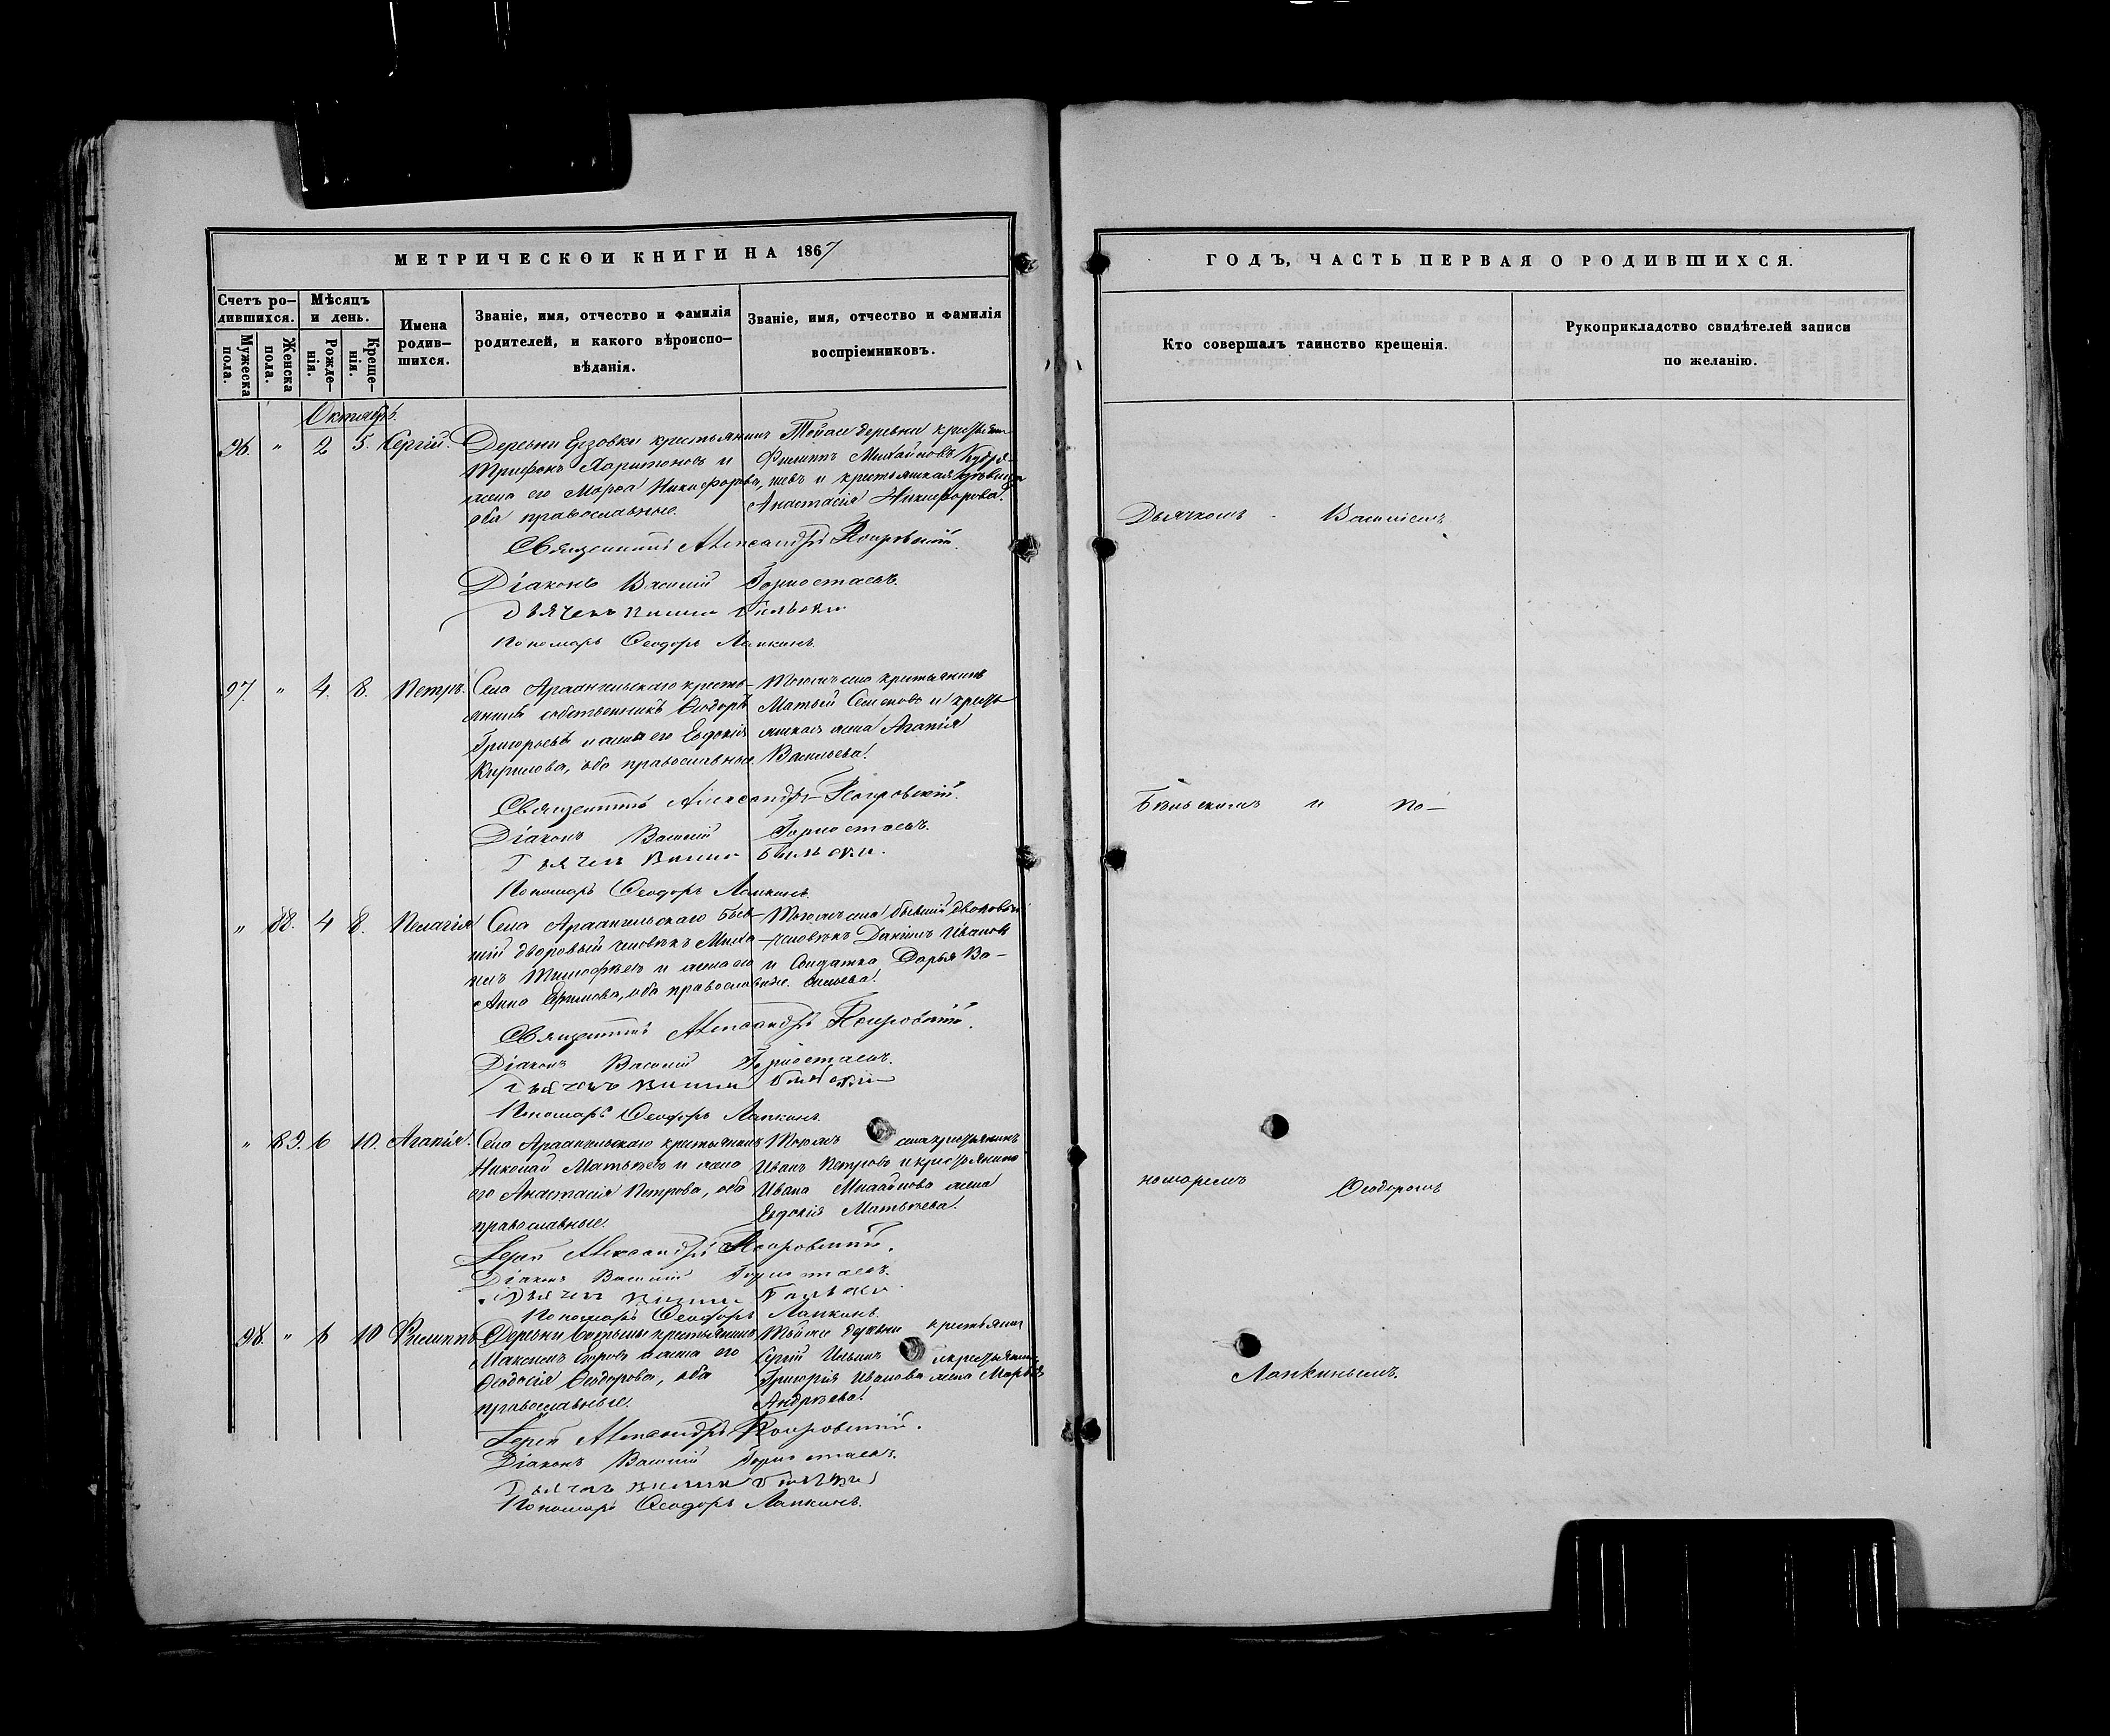 МЕТРИЧЕСКОИ КНИГИ НА 1867
Счетъ ро-
дившихся.
Мѣсяцъ
и день.
Имена
родив-
шихся.
Званіе, имя, отчество и фамилія
родителей, и какого вѣроиспо-
вѣданія.
Званіе, имя, отчество и фамилія
воспріемниковъ.
Мужеска
пола.
Женска
пола.
Рожде-
нія.
Креще-
нія.
Октябрь.
96. " 2 5. Сергій. Деревни Ерзовки крестьянинъ
Трифонъ Харитоновъ и
жена его Марѳа Никифорова,
оба православные.
Тойже деревни
Филиппъ Михайловъ
Анастасія Никифорова.
Священникъ Александръ Покровскій.
Діаконъ Василій Горностаевъ.
Дьячекъ
Пономарь Ѳеодоръ Лапкинъ.
97. " 4. 8. Петръ. Села Архангельскаго кресть-
янинъ собственникъ Ѳеодоръ
Григорьевъ и жена его Евдокія
Кирилова, оба православные.
Тогожъ села крестьянинъ
Матвѣй Семеновъ и кресть
янская жена Агапія
Васильева.
Священникъ Александръ Покровскій.
Діаконъ Василій Горностаевъ.
Дьячекъ
Пономарь Ѳеодоръ Лапкинъ.
" 88. 4 8. Пелагія Села Архангельскаго быв-
шій дворовый человѣкъ Миха
илъ Тимофѣевъ и жена его
Анна Ефимова, оба православные.
Тогожъ села бывшій дворовый
человѣкъ Даніилъ Ивановъ
и Солдатка Дарья Ва-
сильева.
Священникъ Александръ Покровскій.
Діаконъ Василій Горностаевъ.
Дьячекъ
Пономарь Ѳеодоръ Лапкинъ.
" 89. 6 10. Агапія. Села Архангельскаго крестьянинъ
Николай Матвѣевъ и жена
его Анастасія Петрова, оба
православные.
Тогожъ села крестьянинъ
Иванъ Петровъ и крестьянина
Ивана Михайлова жена
Евдокія Матвѣева.
Іерей Александръ Покровскій.
Діаконъ Василій Горностаевъ.
Дьячекъ
Пономарь Ѳеодоръ Лапкинъ.
98. " 6 10 Филиппъ Деревни крестьянинъ
Максимъ Егоровъ и жена его
Ѳеодосія Ѳеодорова, оба
православные.
Тойже деревни крестьянинъ
Сергій Ильинъ
Григорія Иванова жена Марѳа
Андреева.
Іерей Александръ Покровскій.
Діаконъ Василій Горностаевъ.
Дьячекъ
Пономарь Ѳеодоръ Лапкинъ.
ГОДЪ, ЧАСТЬ ПЕРВАЯ О РОДИВШИХСЯ.
Кто совершалъ таинство крещенія.
Рукоприкладство свидѣтелей записи
по желанію.
Дьячкомъ - Василіемъ
Бѣльскимъ и По-
номаремъ Ѳеодоромъ
Лапкинымъ.